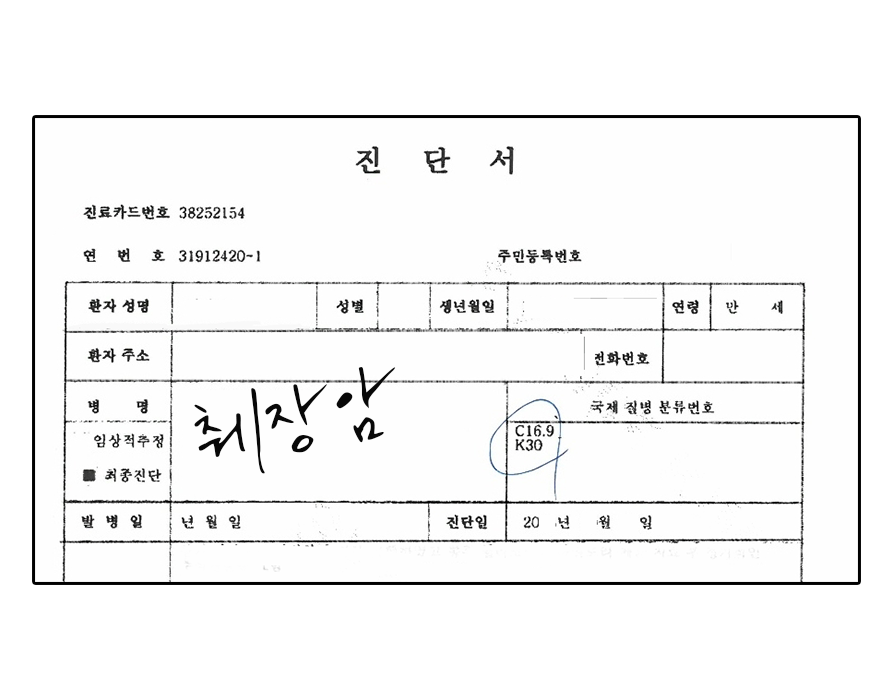 진 단 서
진료카드번호 38252154
연 번 호 31912420-1 주민등록번호
환자 성명 성별 생년월일 연령 만 세
환자 주소 전화번호
병 명 췌장암 국제 질병 분류번호
임상적추정 C16.9
K30
■ 최종진단
발 병 일 년 월 일 진단일 20 년 월 일